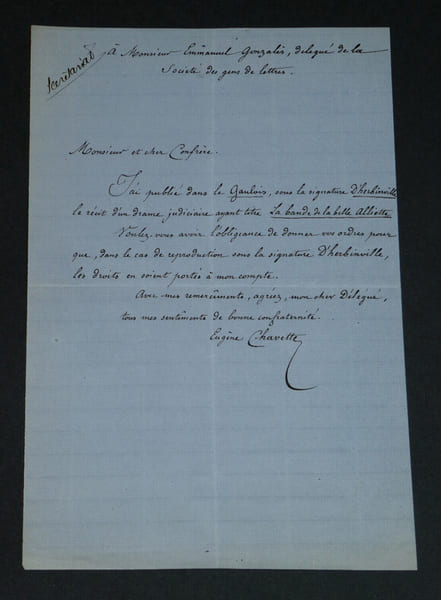 Secrétariat
à Monsieur Emmanuel Gonzalès, délégué de la
Société des gens de lettres.
Monsieur et cher Confrère.
J'ai publié dans le Gaulois, sous la signature D'herbinville
le récit d'un drame judiciaire ayant titre La bande de la belle Alliette
Voulez-vous avoir l'obligeance de donner vos ordres pour
que, dans le cas de reproduction sous la signature D'herbinville,
les droits en soient portés à mon compte.
Avec mes remercîments, agréez, mon cher Délégué,
tous mes sentiments de bonne confraternité.
Eugène Chavette